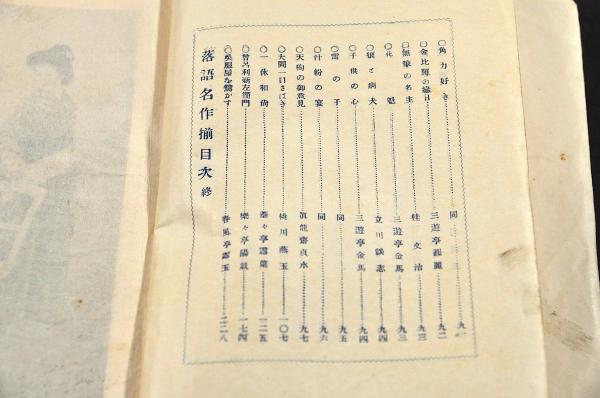 ○角力好き……同……九一
○金比羅の縁日……三遊亭圓麗……九二
○無筆の名主……桂文治……九三
○花魁……三遊亭金馬……九三
○狼と病犬……立川談志……九四
○子供の心……三遊亭金馬……九四
○雷の子……同……九五
○汁粉の宴……同……九六
○天狗の御意見……眞龍齋貞水……九七
○太閤一日さばき……桃川燕玉……一〇七
○一休和尚……一二五
○曾呂利新左衛門……一七四
○呉服屋を驚かす……春風亭露玉……二二八
落語名作揃目次終